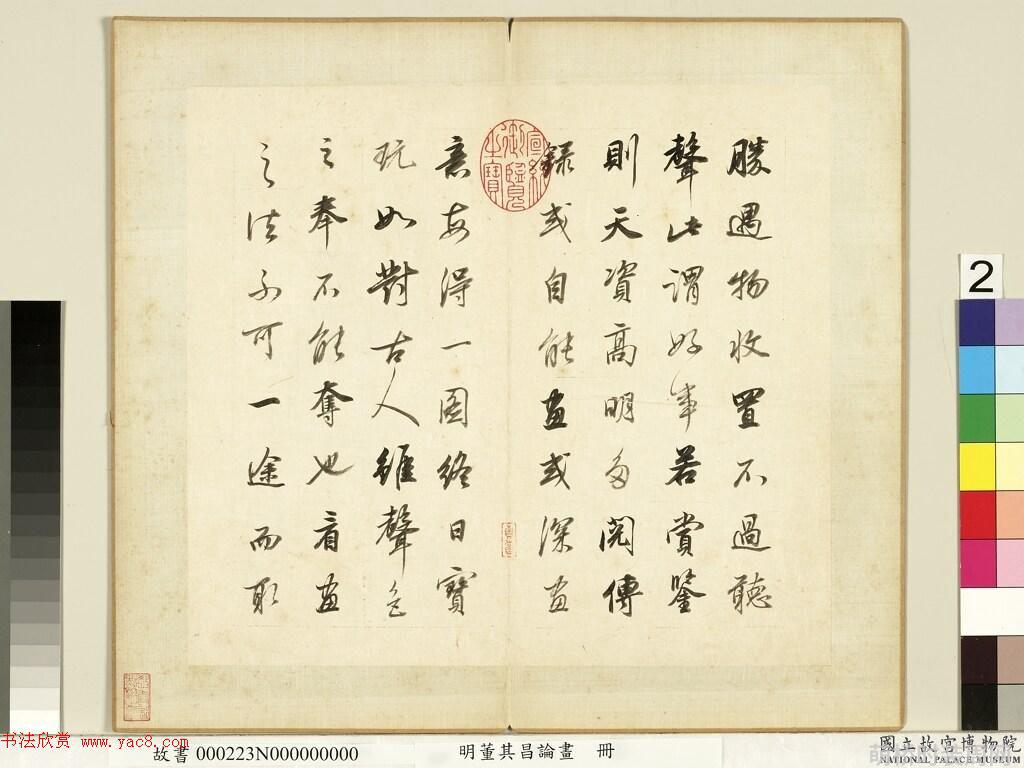 勝遇物收置不過聽
聲此謂好事若賞鑒
則天資高明多閱傳
錄或自能畫或深畫
意每得一圖終日寶
玩如對古人雖聲色
之奉不能奪也看畫
之法不可一途而取
宣統御覽之寶
2
故書 000223N000000000
明董其昌論畫 冊
國立故宮博物院
NATIONAL PALACE MUSEUM
书法欣赏 www.yac8.com